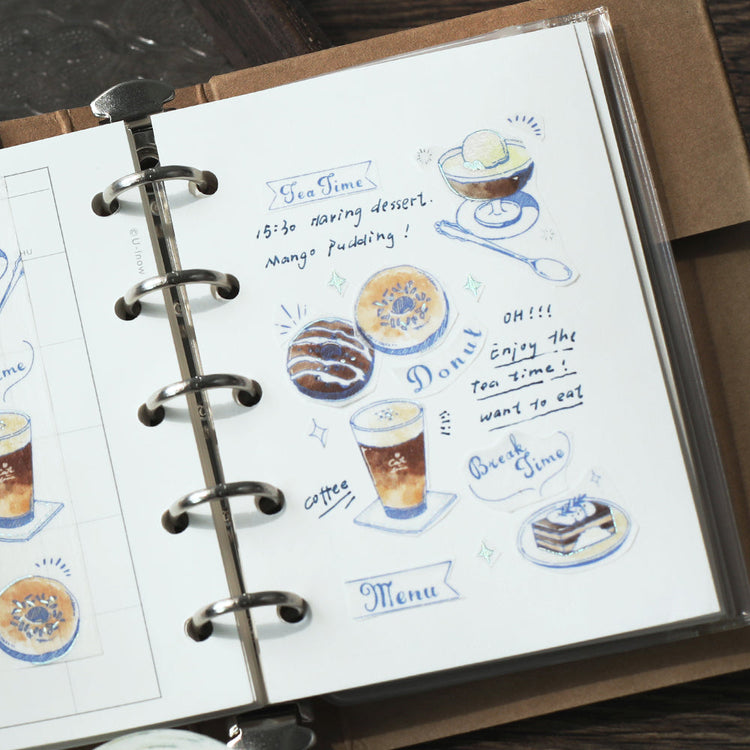 Tea Time
15:30 Having dessert.
Mango Pudding!
OH!!!
Enjoy the
tea time!
want to eat
Donut
coffee
Break
Time
Menu
© U-know
me